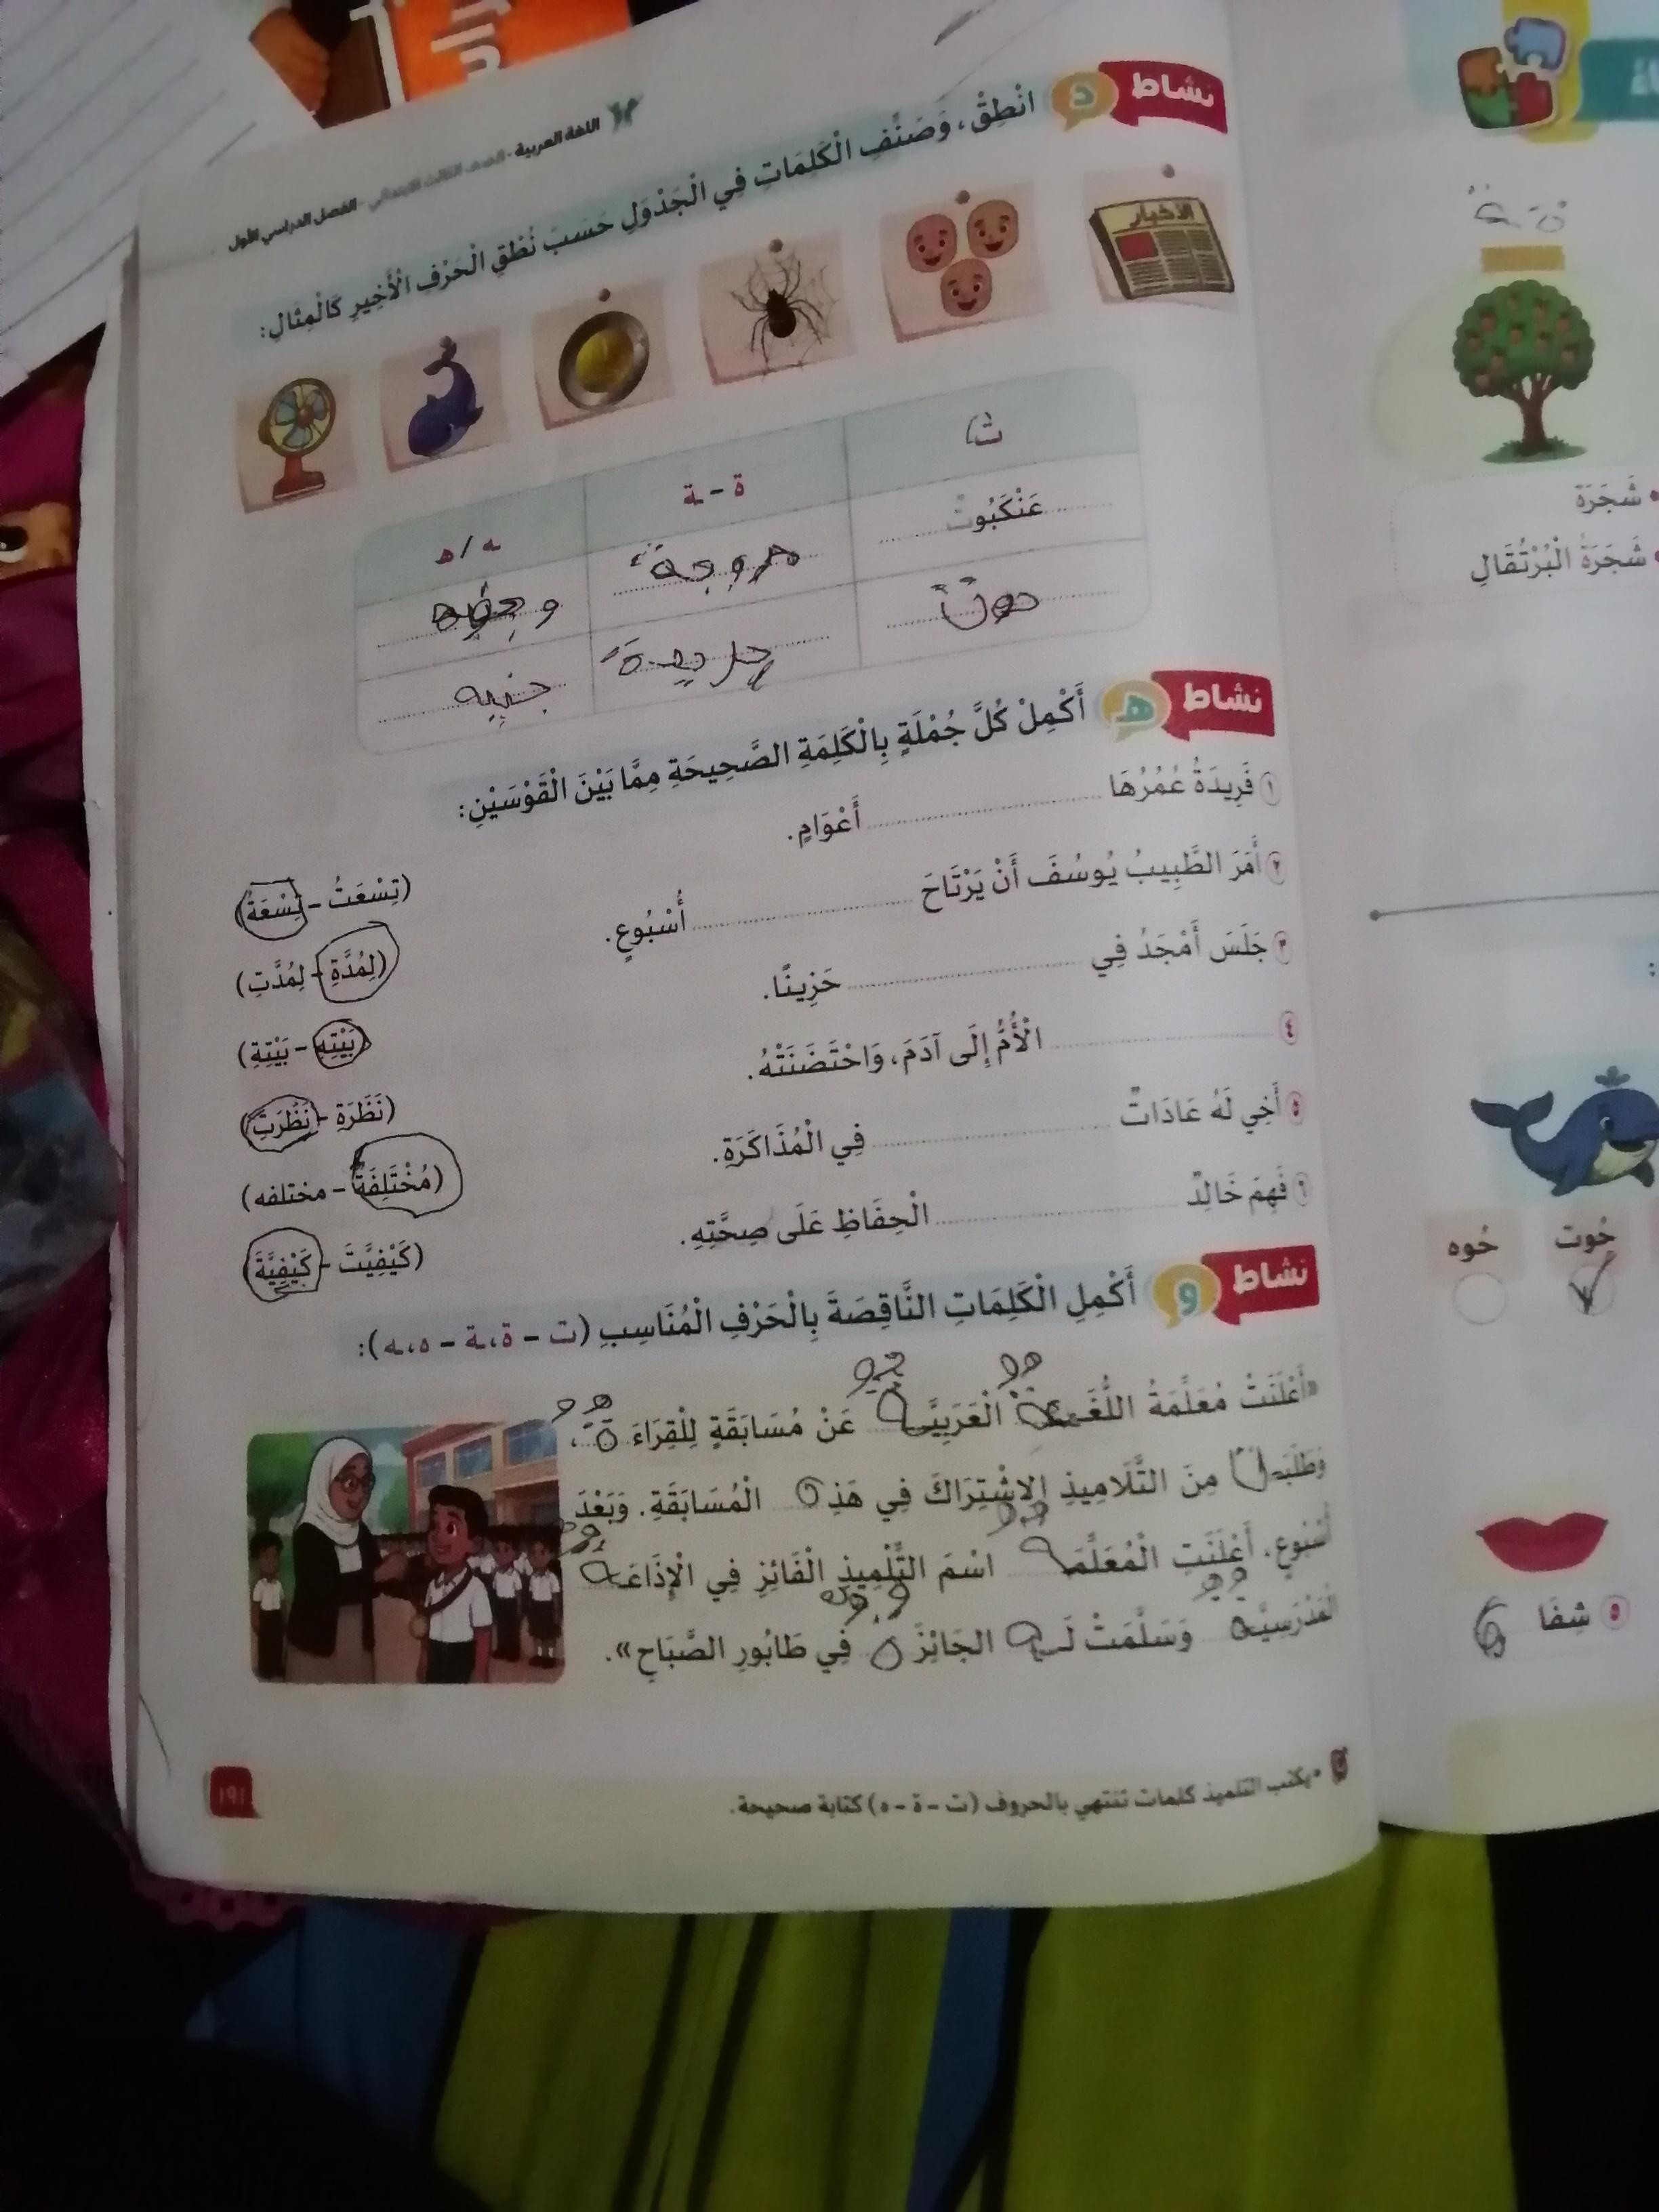 اللغة العربية - الصف الثالث الابتدائي - الفصل الدراسي الأول
نشاط د انْطِقْ، وَصَنِّفِ الْكَلِمَاتِ فِي الْجَدْوَلِ حَسَبَ نُطْقِ الْحَرْفِ الْأَخِيرِ كَالْمِثَالِ:
الأخبار
ت
ة - ـة
ـه / ه
عَنْكَبُوت
حوت
جريدة
جنيه
نشاط هـ أَكْمِلْ كُلَّ جُمْلَةٍ بِالْكَلِمَةِ الصَّحِيحَةِ مِمَّا بَيْنَ الْقَوْسَيْنِ:
١ فَرِيدَةُ عُمُرُهَا ........ أَعْوَامٍ. (تِسْعَتُ - تِسْعَةُ)
٢ أَمَرَ الطَّبِيبُ يُوسُفَ أَنْ يَرْتَاحَ ........ أُسْبُوعٍ. (لِمُدَّةِ - لِمُدَّتِ)
٣ جَلَسَ أَمْجَدُ فِي ........ حَزِينًا. (بَيْتِهِ - بَيْتِةِ)
٤ ........ الْأُمُّ إِلَى آدَمَ، وَاحْتَضَنَتْهُ. (نَظَرَةِ - نَظَرَتِ)
٥ أَخِي لَهُ عَادَاتٌ ........ فِي الْمُذَاكَرَةِ. (مُخْتَلِفَةٌ - مختلفه)
٦ فَهِمَ خَالِدٌ ........ الْحِفَاظِ عَلَى صِحَّتِهِ. (كَيْفِيَّتَ - كَيْفِيَّةَ)
نشاط و أَكْمِلِ الْكَلِمَاتِ النَّاقِصَةَ بِالْحَرْفِ الْمُنَاسِبِ (ت - ة، ـة - ه، ـه):
«أَعْلَنَتْ مُعَلِّمَةُ اللُّغَـة الْعَرَبِيَّـة عَنْ مُسَابَقَةٍ لِلْقِرَاءَ ة،
وَطَلَبَـت مِنَ التَّلَامِيذِ الِاشْتِرَاكَ فِي هَذِ ه الْمُسَابَقَةِ. وَبَعْدَ
أُسْبُوعٍ، أَعْلَنَتِ الْمُعَلِّمَـة اسْمَ التِّلْمِيذِ الْفَائِزِ فِي الْإِذَاعَـة
الْمَدْرَسِيَّـة وَسَلَّمَتْ لَـه الجَائِزَ ة فِي طَابُورِ الصَّبَاحِ».
• يكتب التلميذ كلمات تنتهي بالحروف (ت - ة - ه) كتابة صحيحة.
١٩١
• شَجَرَة
• شَجَرَةُ الْبُرْتُقَالِ
حُوت
حُوه
٥ شِفَا ه